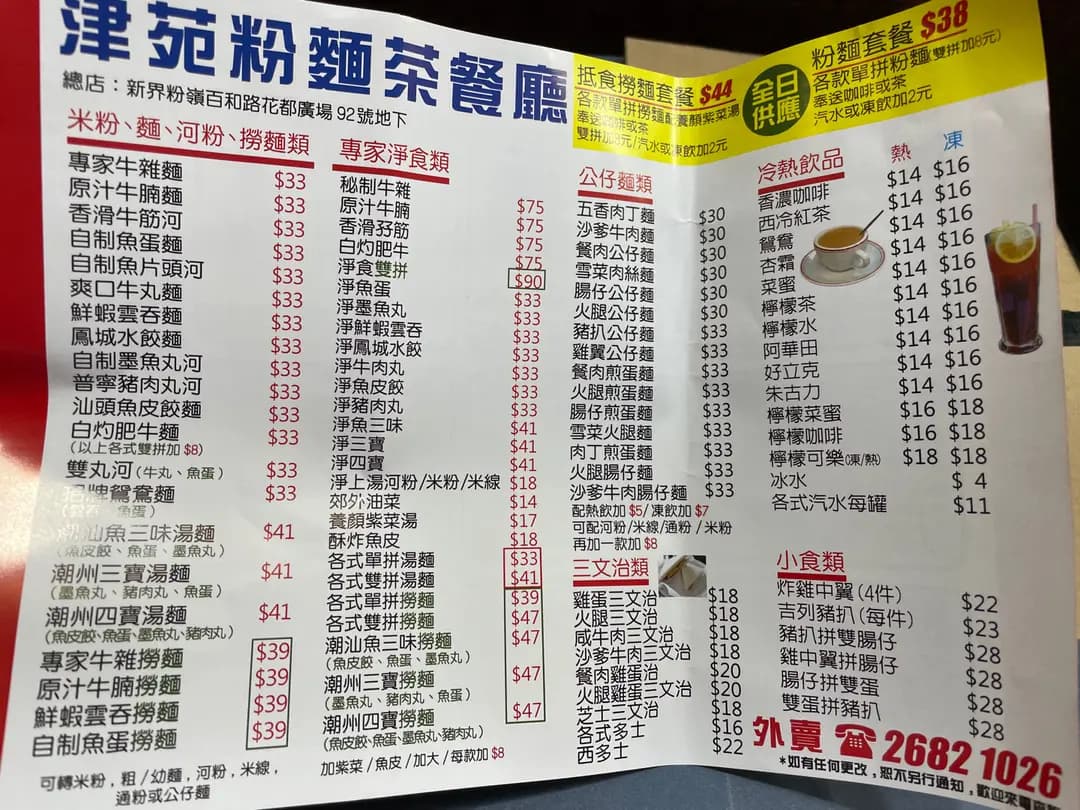 津苑粉麵茶餐廳
總店：新界粉嶺百和路花都廣場 92號地下
抵食撈麵套餐 $44
各款單拼撈麵配養顏紫菜湯
奉送咖啡或茶
雙拼加8元/汽水或凍飲加2元
全日供應
粉麵套餐 $38
各款單拼粉麵(雙拼加8元)
奉送咖啡或茶
汽水或凍飲加2元
米粉、麵、河粉、撈麵類
專家牛雜麵 $33
原汁牛腩麵 $33
香滑牛筋河 $33
自制魚蛋麵 $33
自制魚片頭河 $33
爽口牛丸麵 $33
鮮蝦雲吞麵 $33
鳳城水餃麵 $33
自制墨魚丸河 $33
普寧豬肉丸河 $33
汕頭魚皮餃麵 $33
白灼肥牛麵 $33
(以上各式雙拼加 $8)
雙丸河(牛丸、魚蛋) $33
鴛鴦麵 $33
魚蛋)
汕魚三味湯麵 $41
(魚皮餃、魚蛋、墨魚丸)
潮州三寶湯麵 $41
(墨魚丸、豬肉丸、魚蛋)
潮州四寶湯麵 $41
(魚皮餃、魚蛋、墨魚丸、豬肉丸)
專家牛雜撈麵 $39
原汁牛腩撈麵 $39
鮮蝦雲吞撈麵 $39
自制魚蛋撈麵 $39
可轉米粉，粗/幼麵，河粉，米線，
通粉或公仔麵
專家淨食類
秘制牛雜 $75
原汁牛腩 $75
香滑孖筋 $75
白灼肥牛 $75
淨食雙拼 $90
淨魚蛋 $33
淨墨魚丸 $33
淨鮮蝦雲吞 $33
淨鳳城水餃 $33
淨牛肉丸 $33
淨魚皮餃 $33
淨豬肉丸 $33
淨魚三味 $41
淨三寶 $41
淨四寶 $41
淨上湯河粉/米粉/米線 $18
郊外油菜 $14
養顏紫菜湯 $17
酥炸魚皮 $18
各式單拼湯麵 $33
各式雙拼湯麵 $41
各式單拼撈麵 $39
各式雙拼撈麵 $47
潮汕魚三味撈麵 $47
(魚皮餃、魚蛋、墨魚丸)
潮州三寶撈麵 $47
(墨魚丸、豬肉丸、魚蛋)
潮州四寶撈麵 $47
(魚皮餃、魚蛋、墨魚丸、豬肉丸)
加紫菜/魚皮/加大/每款加 $8
公仔麵類
五香肉丁麵 $30
沙爹牛肉麵 $30
餐肉公仔麵 $30
雪菜肉絲麵 $30
腸仔公仔麵 $30
火腿公仔麵 $30
豬扒公仔麵 $33
雞翼公仔麵 $33
餐肉煎蛋麵 $33
火腿煎蛋麵 $33
腸仔煎蛋麵 $33
雪菜火腿麵 $33
肉丁煎蛋麵 $33
火腿腸仔麵 $33
沙爹牛肉腸仔麵 $33
配熱飲加 $5/凍飲加 $7
可配河粉/米線/通粉/米粉
再加一款加 $8
三文治類
雞蛋三文治 $18
火腿三文治 $18
咸牛肉三文治 $18
沙爹牛肉三文治 $18
餐肉雞蛋治 $20
火腿雞蛋三文治 $20
芝士三文治 $18
各式多士 $16
西多士 $22
冷熱飲品 熱 凍
香濃咖啡 $14 $16
西冷紅茶 $14 $16
鴛鴦 $14 $16
杏霜 $14 $16
菜蜜 $14 $16
檸檬茶 $14 $16
檸檬水 $14 $16
阿華田 $14 $16
好立克 $14 $16
朱古力 $14 $16
檸檬菜蜜 $16 $18
檸檬咖啡 $16 $18
檸檬可樂(凍/熱) $18 $18
冰水 $ 4
各式汽水每罐 $11
小食類
炸雞中翼(4件) $22
吉列豬扒(每件) $23
豬扒拼雙腸仔 $28
雞中翼拼腸仔 $28
腸仔拼雙蛋 $28
雙蛋拼豬扒 $28
外賣 ☎ 2682 1026
*如有任何更改，恕不另行通知，歡迎來電